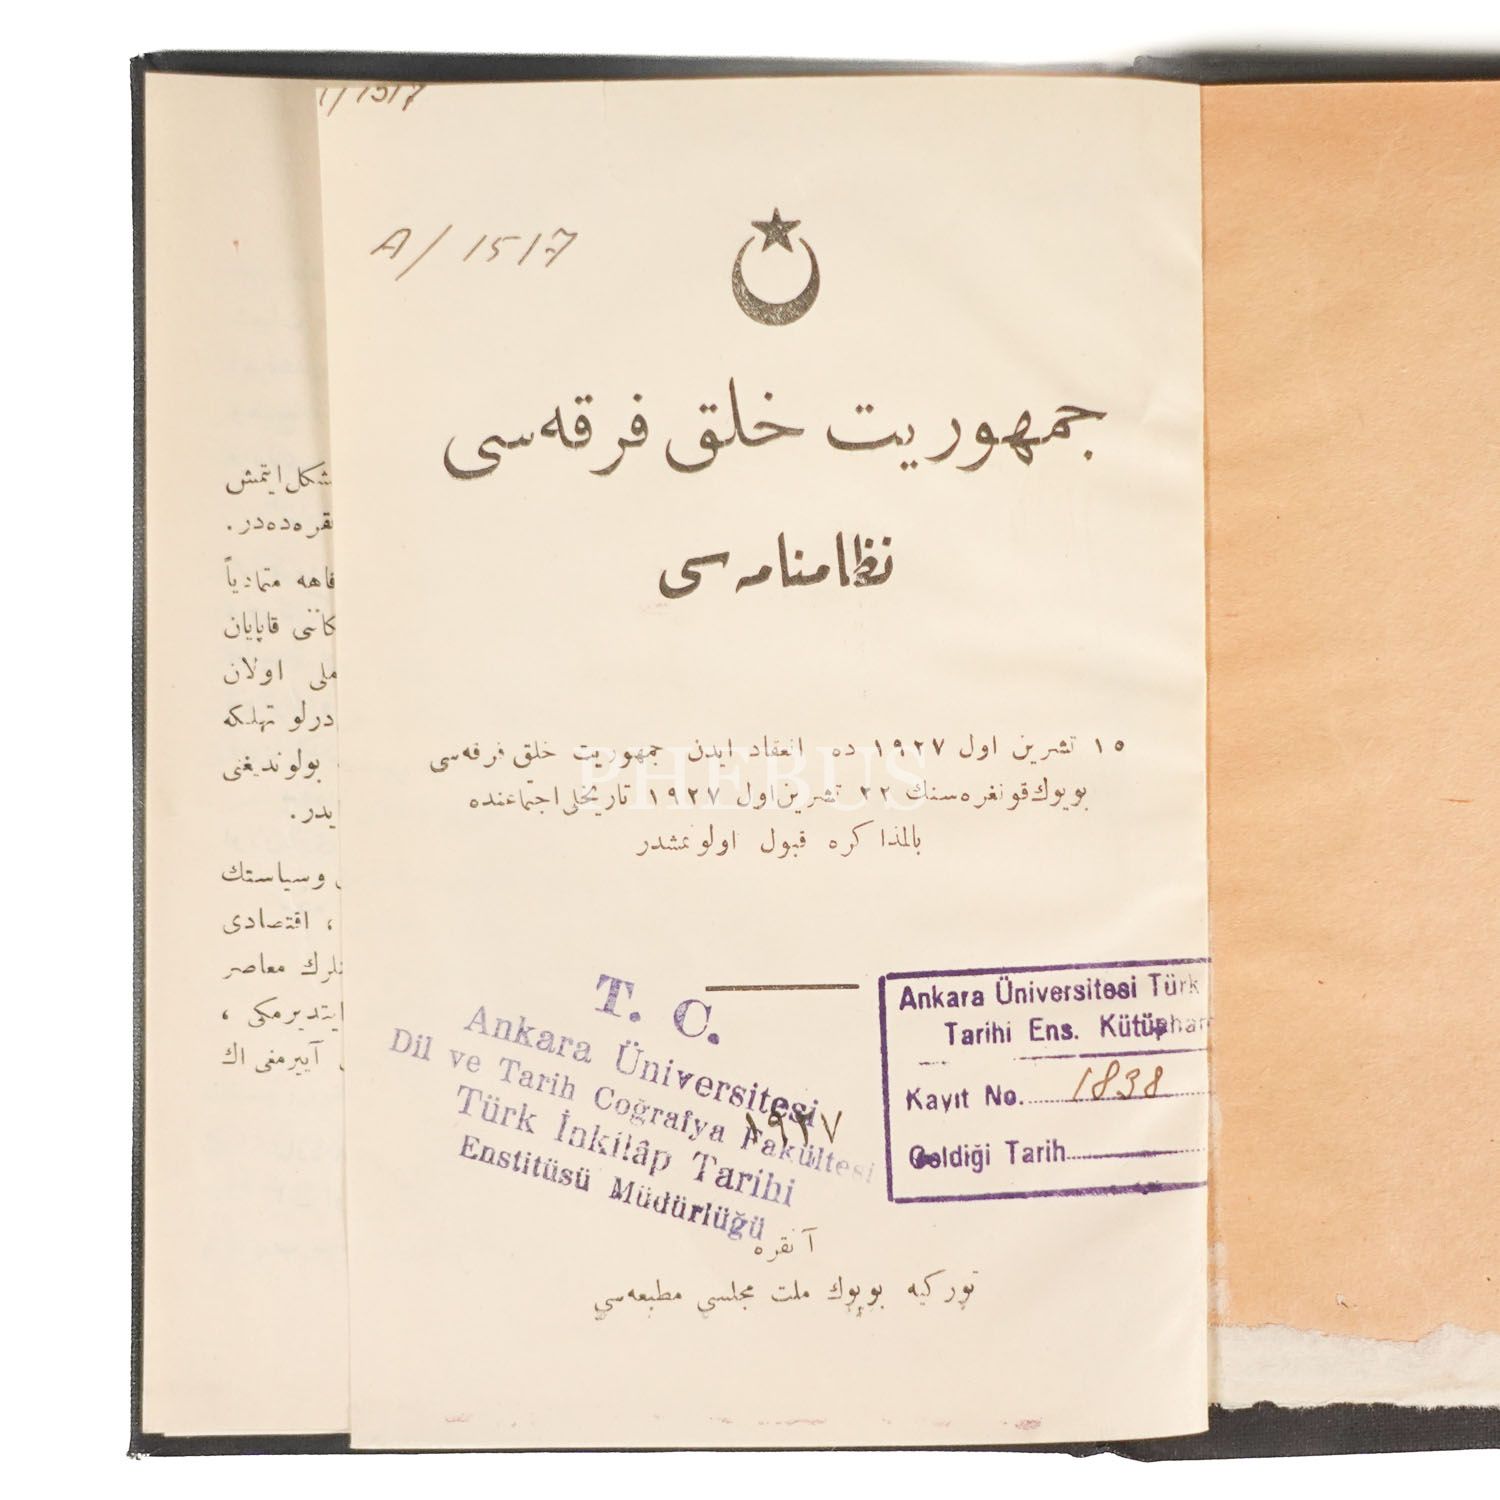 A/1517
A/1517
جمهوریت خلق فرقه‌سی
نظامنامه‌سی
١٥ تشرین اول ١٩٢٧ ده انعقاد ایدن جمهوریت خلق فرقه‌سی
بویوك قونغره‌سنك ٢٢ تشرین اول ١٩٢٧ تاریخلی اجتماعنده
بالمذاكره قبول اولونمشدر
PHEBUS
T. C.
Ankara Üniversitesi
Dil ve Tarih Coğrafya Fakültesi
Türk İnkilâp Tarihi
Enstitüsü Müdürlüğü
Ankara Üniversitesi Türk
Tarihi Ens. Kütüphan
Kayıt No. 1838
Geldiği Tarih
١٩٢٧
آنقره
توركیه بویوك ملت مجلسی مطبعه‌سی
شكل ایتمش
نقره‌ده‌در.
فاهه متمادیاً
كاننی قاپایان
ملی اولان
درلو تهلكه
بولوندیغنی
یدر.
وسیاستك
، اقتصادی
لرك معاصر
ایتدیرمكی ،
آییرمغی اك